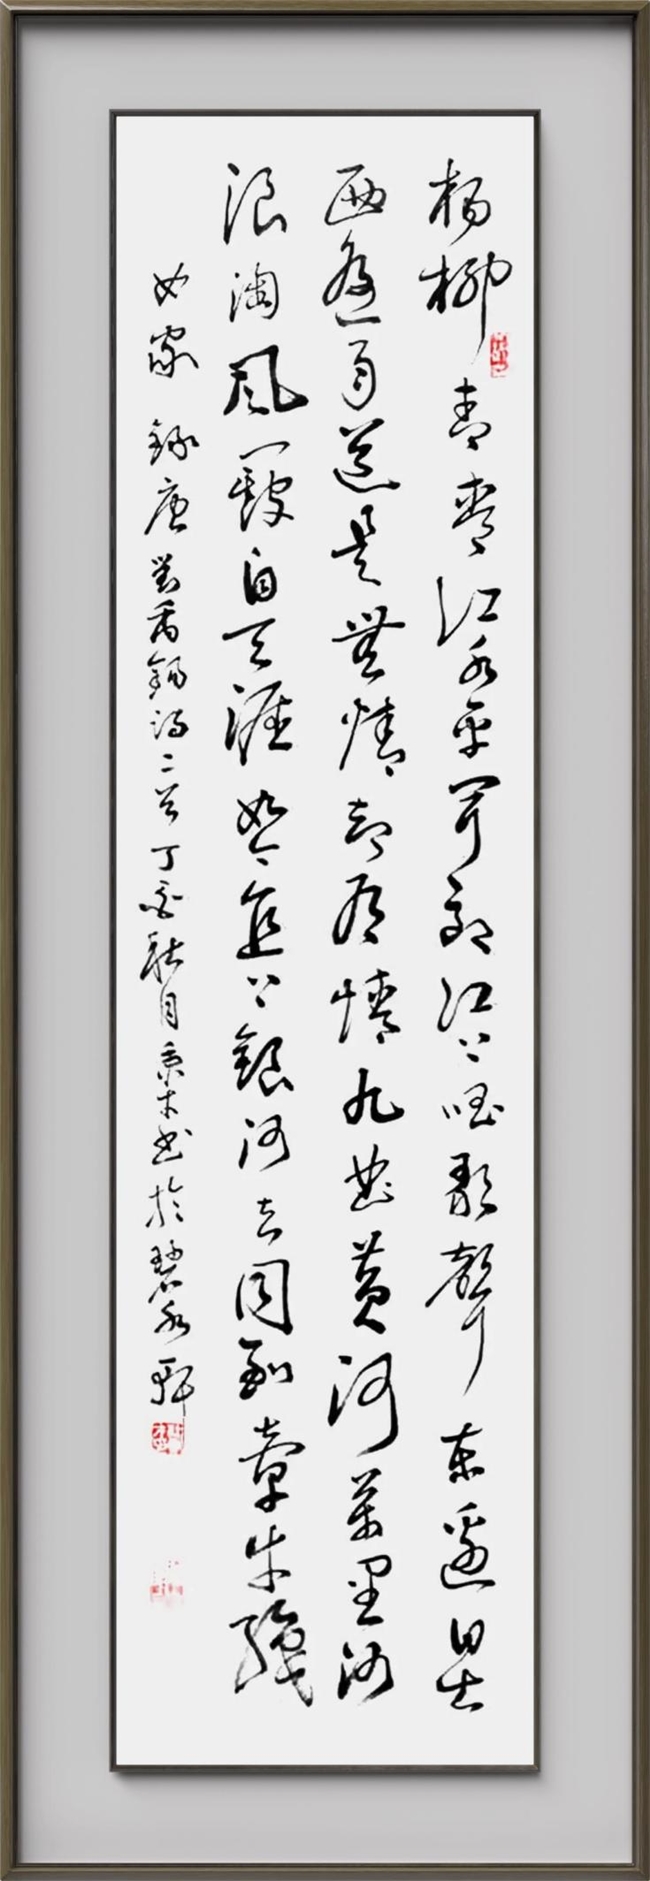 杨柳青青江水平闻郎江上唱歌声东边日出
西边雨道是无情却有情九曲黄河万里沙
浪淘风簸自天涯如今直上银河去同到牵牛织
女家 录唐刘禹锡诗二首丁亥秋月 书于碧水轩